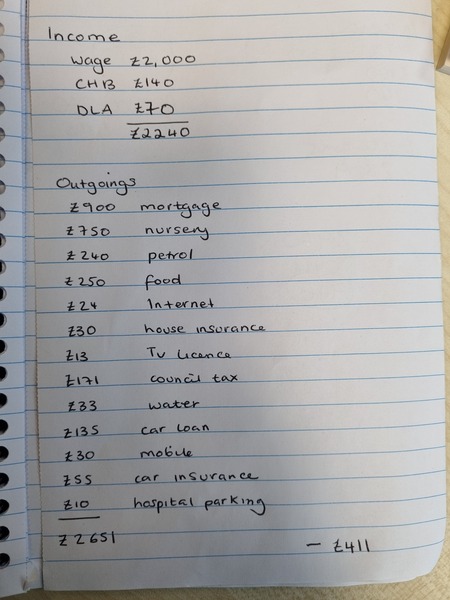 Income
Wage £2,000
CHB £140
DLA £70
£2240
Outgoings
£900 mortgage
£750 nursery
£240 petrol
£250 food
£24 Internet
£30 house insurance
£13 TV Licence
£171 council tax
£33 water
£135 car loan
£30 mobile
£55 car insurance
£10 hospital parking
£2651 - £411